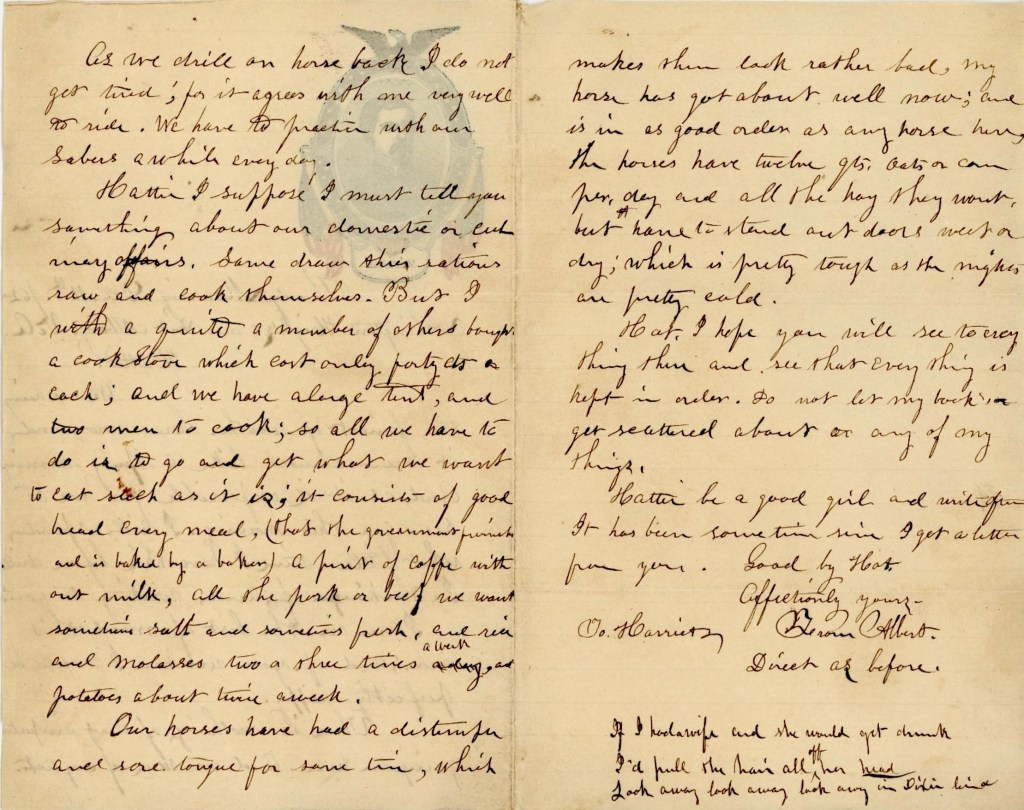 As we drill on horse back I do not
get tired; for it agrees with me very well
to ride. We have to practice with our
sabers a while every day.
Hattie I suppose I must tell you
something about our domestic or cul
inary affairs. Some draw their rations
raw and cook themselves. But I
with a quite a number of others bought
a cook stove which cost only forty cts a
each; and we have a large tent, and
two men to cook; so all we have to
do is to go and get what we want
to eat such as it is; it consists of good
bread every meal, (that the government
and is baked by a baker) a pint of coffe with
out milk, all the pork or beef we want
sometims salt and sometims fresh, and rice
and molasses two a three times a week a day, and
potatoes about twice a week.
Our horses have had a distemper
and sore tongue for some time, which
makes them look rather bad, my
horse has got about well now; and
is in as good order as any horse here,
the horses have twelve qts. oats or corn
per. day and all the hay they want,
but have to stend out doors wet or
dry; which is pretty tough as the nights
are pretty cold.
Hat. I hope you will see to every
thing there and see that every thing is
kept in order. Do not let my books
get scattered about or any of my
things.
Hattie be a good girl and write often
It has been sometime since I got a letter
from you. Good by Hat.
Affectionly yours-
To. Harriet Albert.
Direct as before.
If I had a wife and she would get drunk
I'd pull the hair all off her head
Look away look away look away in Dixie land